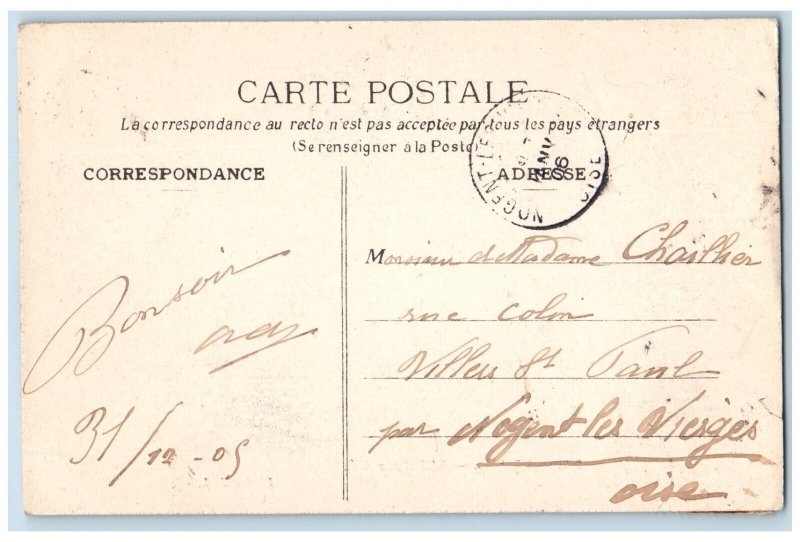 CARTE POSTALE
La correspondance au recto n'est pas acceptée par tous les pays étrangers
(Se renseigner à la Poste
CORRESPONDANCE
ADRESSE
NOGENT-LE
JANV
06
OISE
Bonsoir
31/12-05
Monsieur et Madame Chaillier
rue Colin
Villers St Paul
par Nogent les Vierges
oise